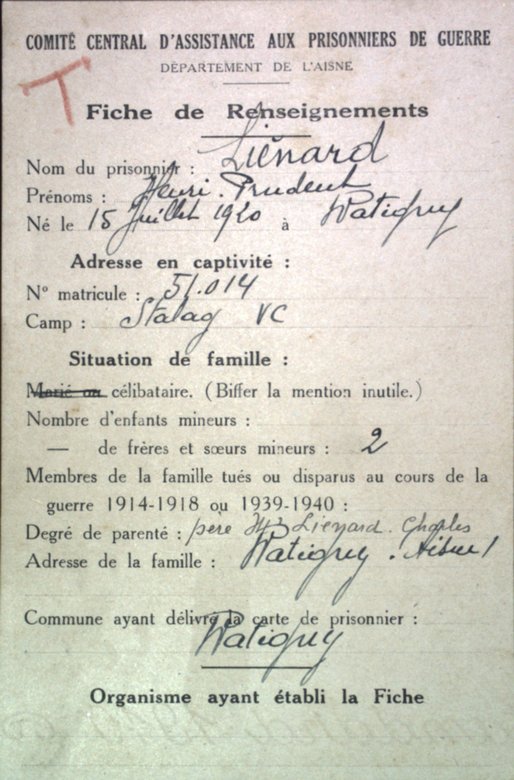 COMITÉ CENTRAL D'ASSISTANCE AUX PRISONNIERS DE GUERRE
DÉPARTEMENT DE L'AISNE
T
Fiche de Renseignements
Nom du prisonnier : Liénard
Prénoms : Henri. Prudent
Né le 15 Juillet 1920 à Watigny
Adresse en captivité :
N° matricule : 51.014
Camp : Stalag VC
Situation de famille :
Marié ou célibataire. (Biffer la mention inutile.)
Nombre d'enfants mineurs :
— de frères et sœurs mineurs : 2
Membres de la famille tués ou disparus au cours de la
guerre 1914-1918 ou 1939-1940 :
Degré de parenté : père Lienard. Charles
Adresse de la famille : Watigny. Aisne
Commune ayant délivré la carte de prisonnier :
Watigny
Organisme ayant établi la Fiche